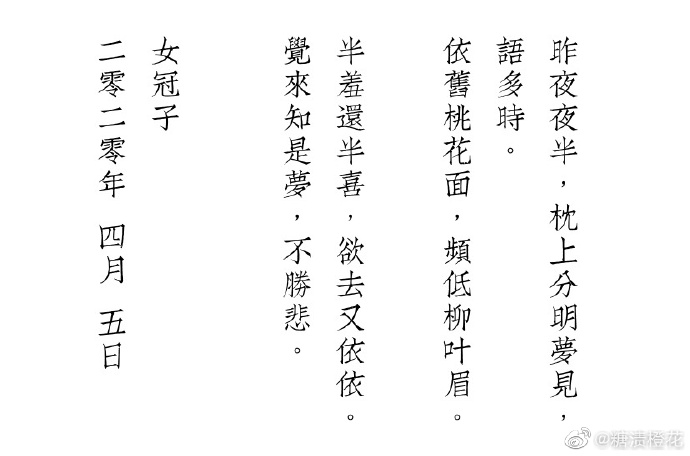 昨夜夜半，枕上分明夢見，
語多時。
依舊桃花面，頻低柳叶眉。
半羞還半喜，欲去又依依。
覺來知是夢，不勝悲。
女冠子
二零二零年 四月 五日
@糖渍橙花